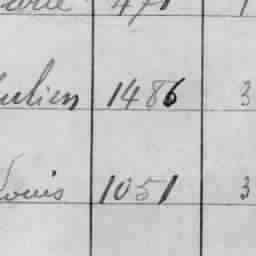 471 1
Julien 1486 3
Louis 1051 3